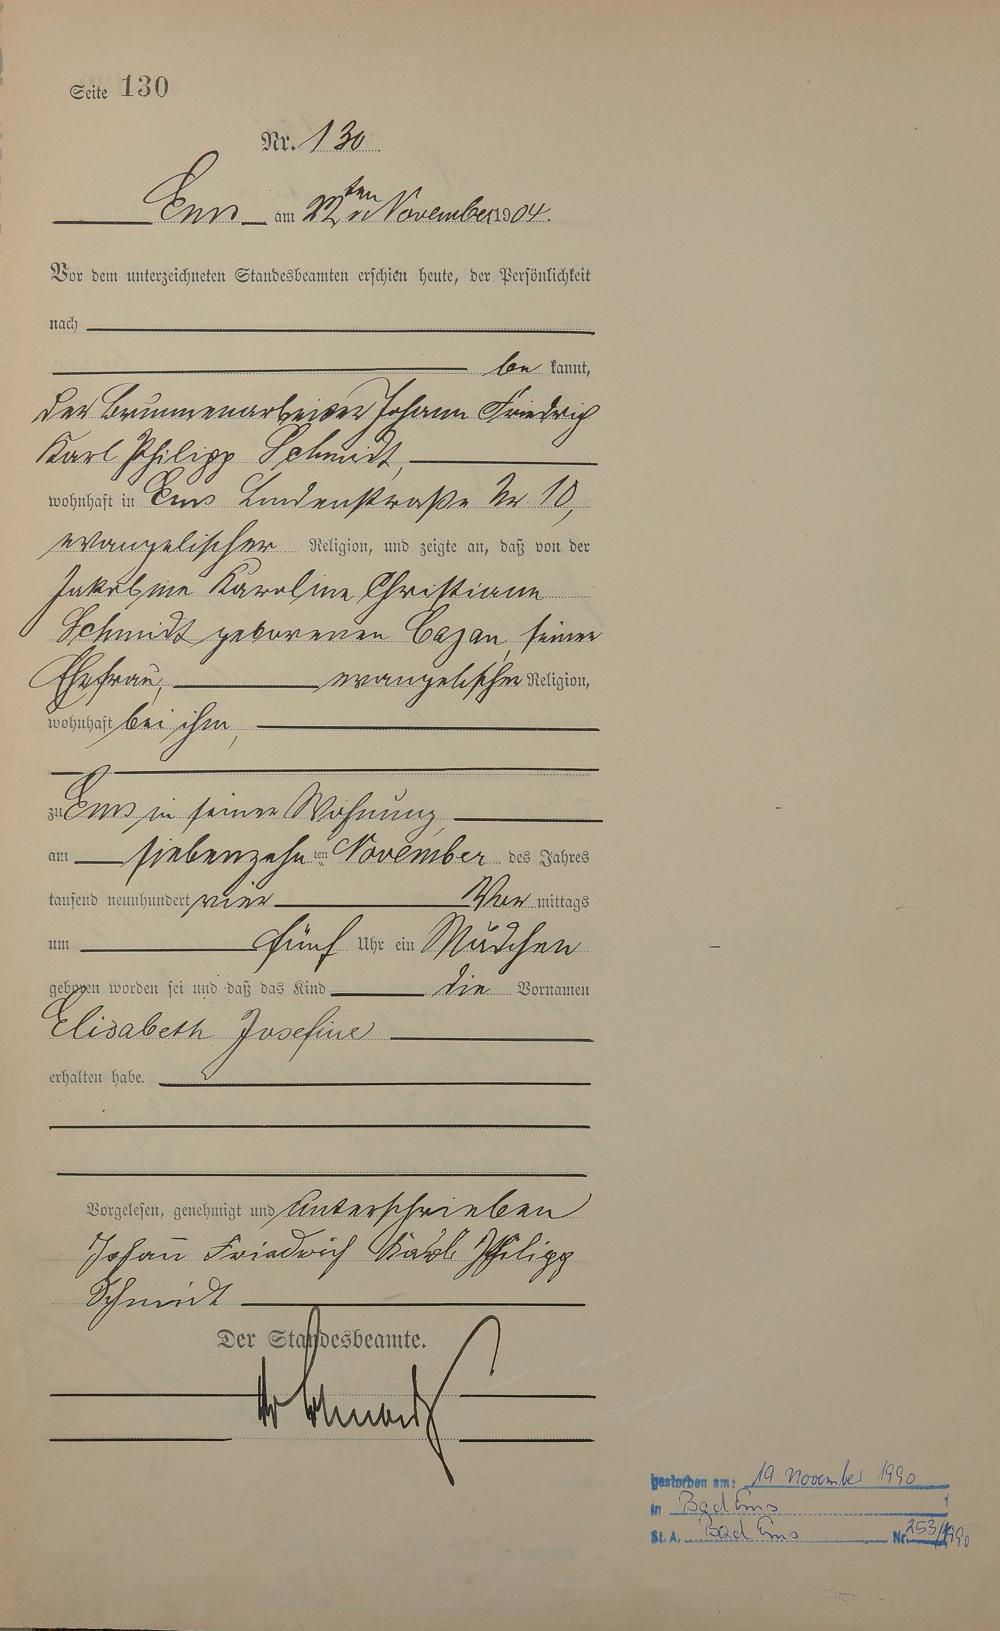 Seite 130
Nr. 130
Ems am 22ten November 1904.
Vor dem unterzeichneten Standesbeamten erschien heute, der Persönlichkeit
nach
be kannt,
der Brunnenarbeiter Johann Friedrich
Karl Philipp Schmidt,
wohnhaft in Ems Lindenstraße Nr. 10,
evangelischer Religion, und zeigte an, daß von der
Jakobine Karoline Christiane
Schmidt geborenen Cazan, seiner
Ehefrau, evangelischer Religion,
wohnhaft bei ihm,
zu Ems in seiner Wohnung
am siebenzehn ten November des Jahres
tausend neunhundert vier Vor mittags
um fünf Uhr ein Mädchen
geboren worden sei und daß das Kind die Vornamen
Elisabeth Josefine
erhalten habe.
Vorgelesen, genehmigt und unterschrieben
Johann Friedrich Karl Philipp
Schmidt
Der Standesbeamte.
gestorben am: 19. November 1990
in Bad Ems
St. A. Bad Ems Nr. 253/1990